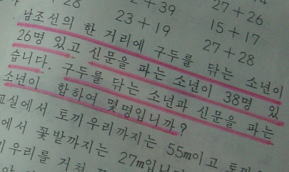 + 28 2 + 39 27 + 26
23 + 19 15 + 17
27 + 28
남조선의 한 거리에 구두를 닦는 소년이
26명 있고 신문을 파는 소년이 38명 있
습니다. 구두를 닦는 소년과 신문을 파는
소년이 합하여 몇명입니까?
교실에서 토끼우리까지는 55m이고 토끼
에서 꽃밭까지는 27m입니